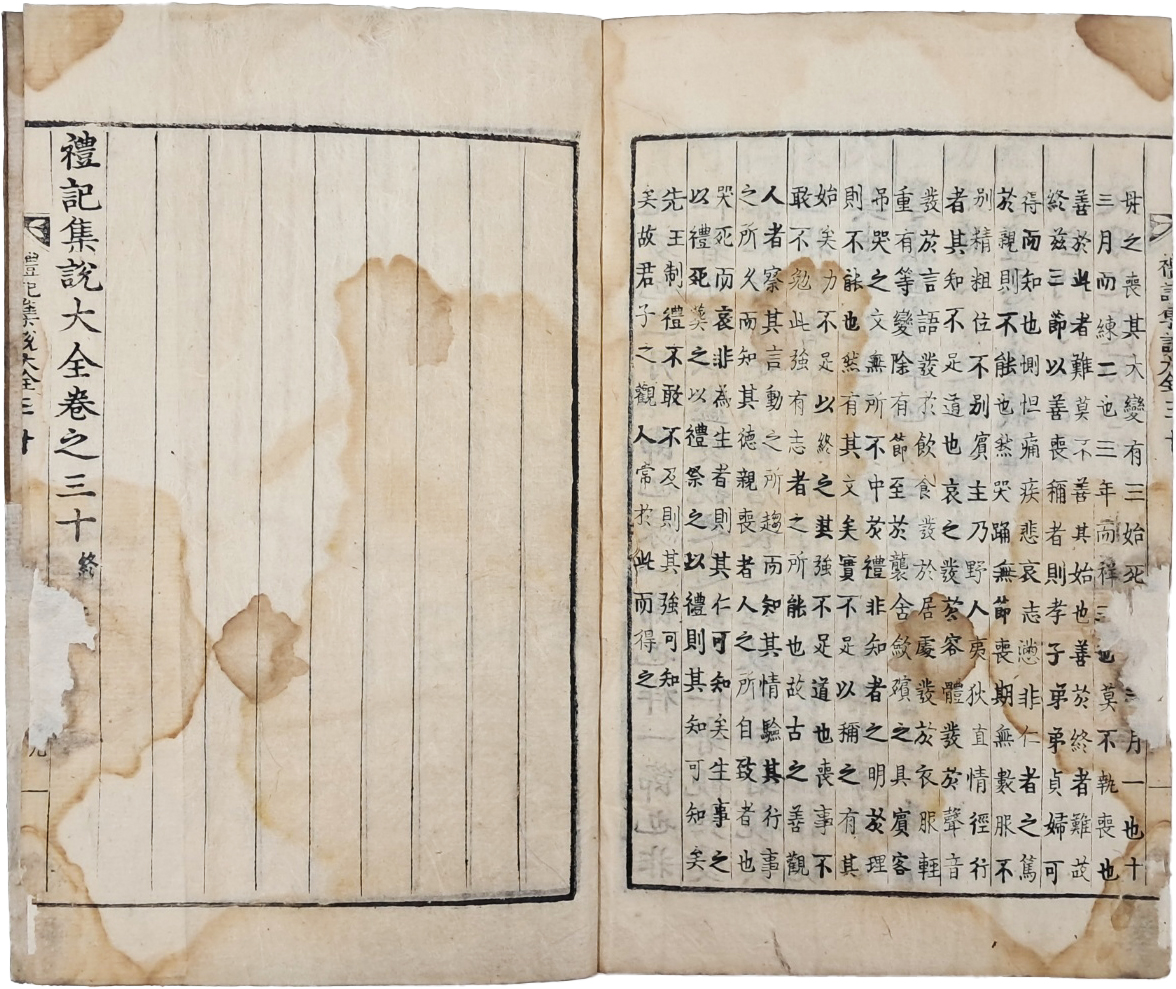 禮記集說大全三十
毋之喪其大變有三始死三月一也十
三月而練二也三年而祥三也莫不執喪也
善於此者難莫不善其始也善於終者難故
終茲三節以善喪稱者則孝子弟弟貞婦可
得而知也惻怛痛疾悲哀志懣非仁者之篤
於親則不能也然哭踊無節喪期無數服不
別精粗位不別賓主乃野人夷狄直情徑行
者其知不足道也哀之發於容體發於聲音
發於言語發於飲食發於居處發於衣服輕
重有等變除有節至於襲含斂殯之具賓客
吊哭之文無所不中於禮非知者之明於理
則不能也然有其文矣實不足以稱之有其
始矣力不足以終之其強不足道也喪事不
敢不勉此強有志者之所能也故古之善觀
人者察其言動之所趨而知其情驗其行事
之所久而知其德親喪者人之所自致者也
哭死而哀非為生者則其仁可知矣生事之
以禮死葬之以禮祭之以禮則其知可知矣
先王制禮不敢不及則其強可知
矣故君子之觀人常於此而得之
禮記集說大全卷之三十 終
禮記集說大全三十 九